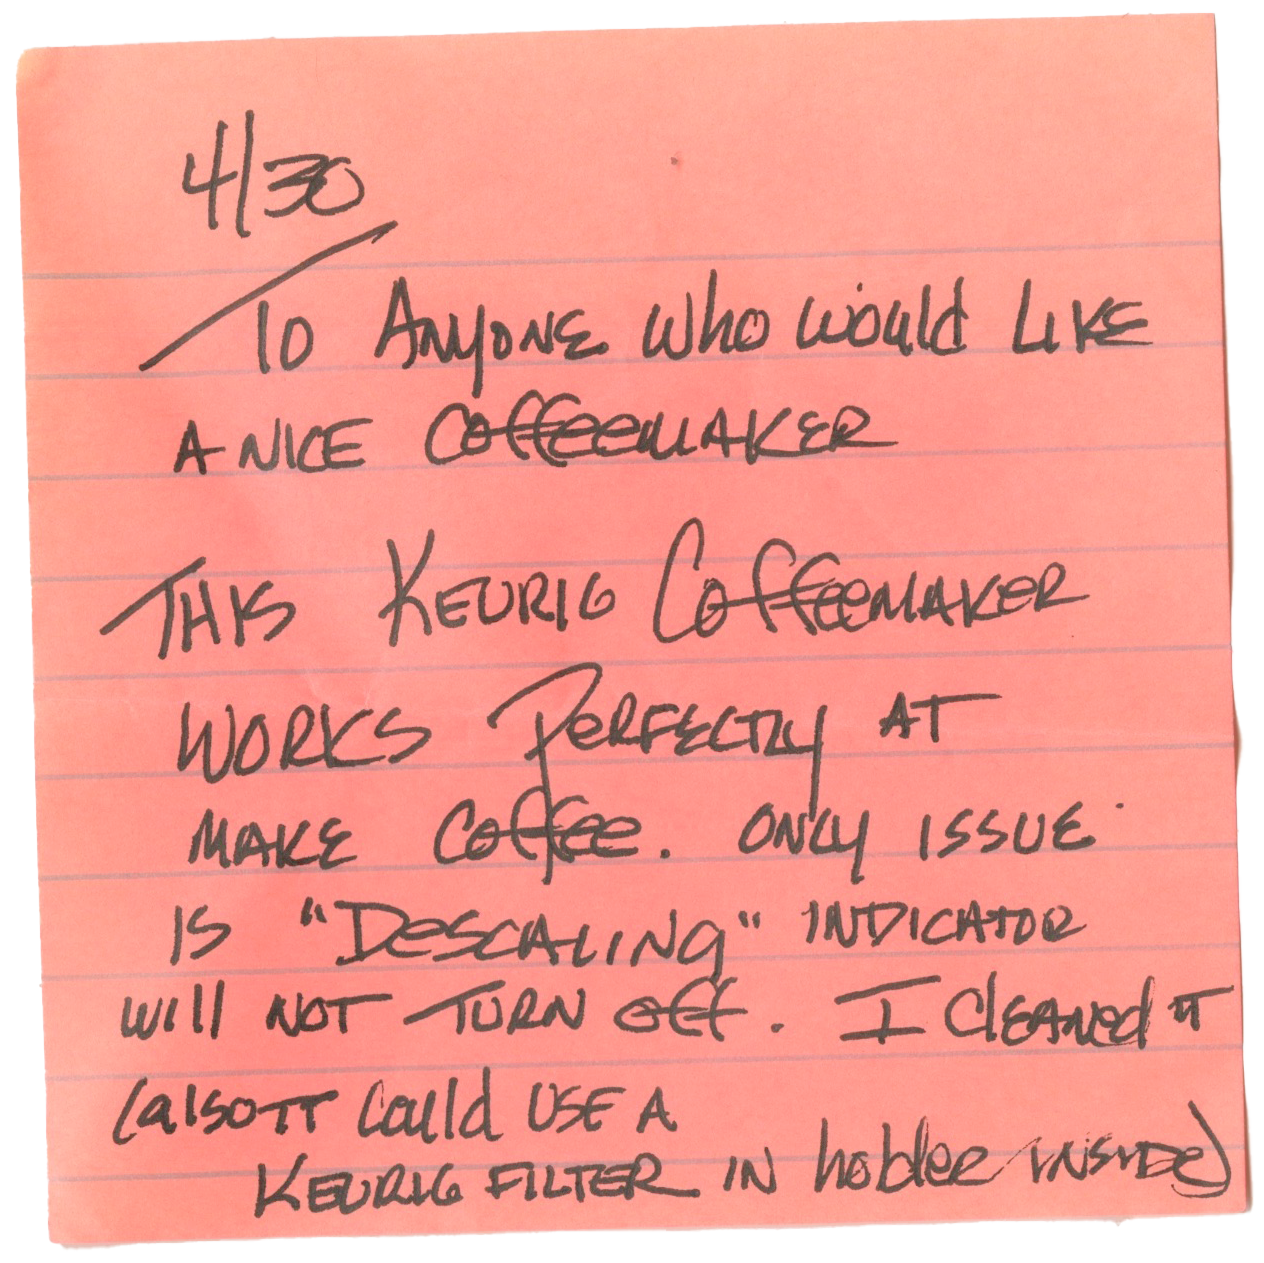 4/30
To Anyone who would LIKE
A NICE CoffeeMAKER
THIS KEURIG CoffeeMAKER
WORKS PERFECTLY AT
MAKE Coffee. ONLY ISSUE
IS "DESCALING" INDICATOR
will NOT TURN off. I CLEANED IT
(also IT could USE A
KEURIG FILTER IN hobler INSIDE)